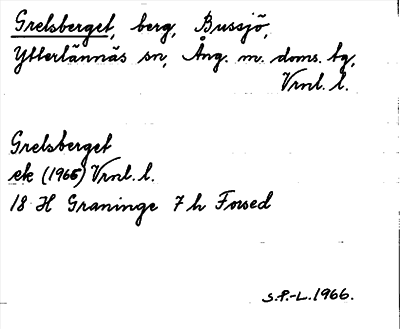 Grelsberget, berg, Bussjö,
Ytterlännäs sn, Ång. m. doms. tg,
Vrnl. l.
Grelsberget
ek (1965) Vrnl. l.
18 H Graninge 7 h Forsed
S.P.-L. 1966.